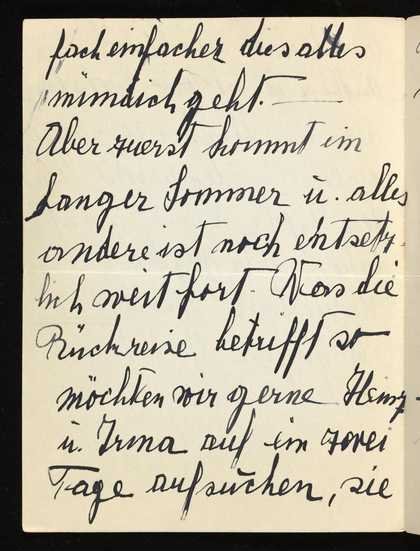 fach einfacher dies alles
mündlich geht. —
Aber zuerst kommt ein
langer Sommer u. alles
andere ist noch entsetz-
lich weit fort. Was die
Rückreise betrifft so
möchten wir gerne Heinz
u. Irma auf ein zwei
Tage aufsuchen, sie